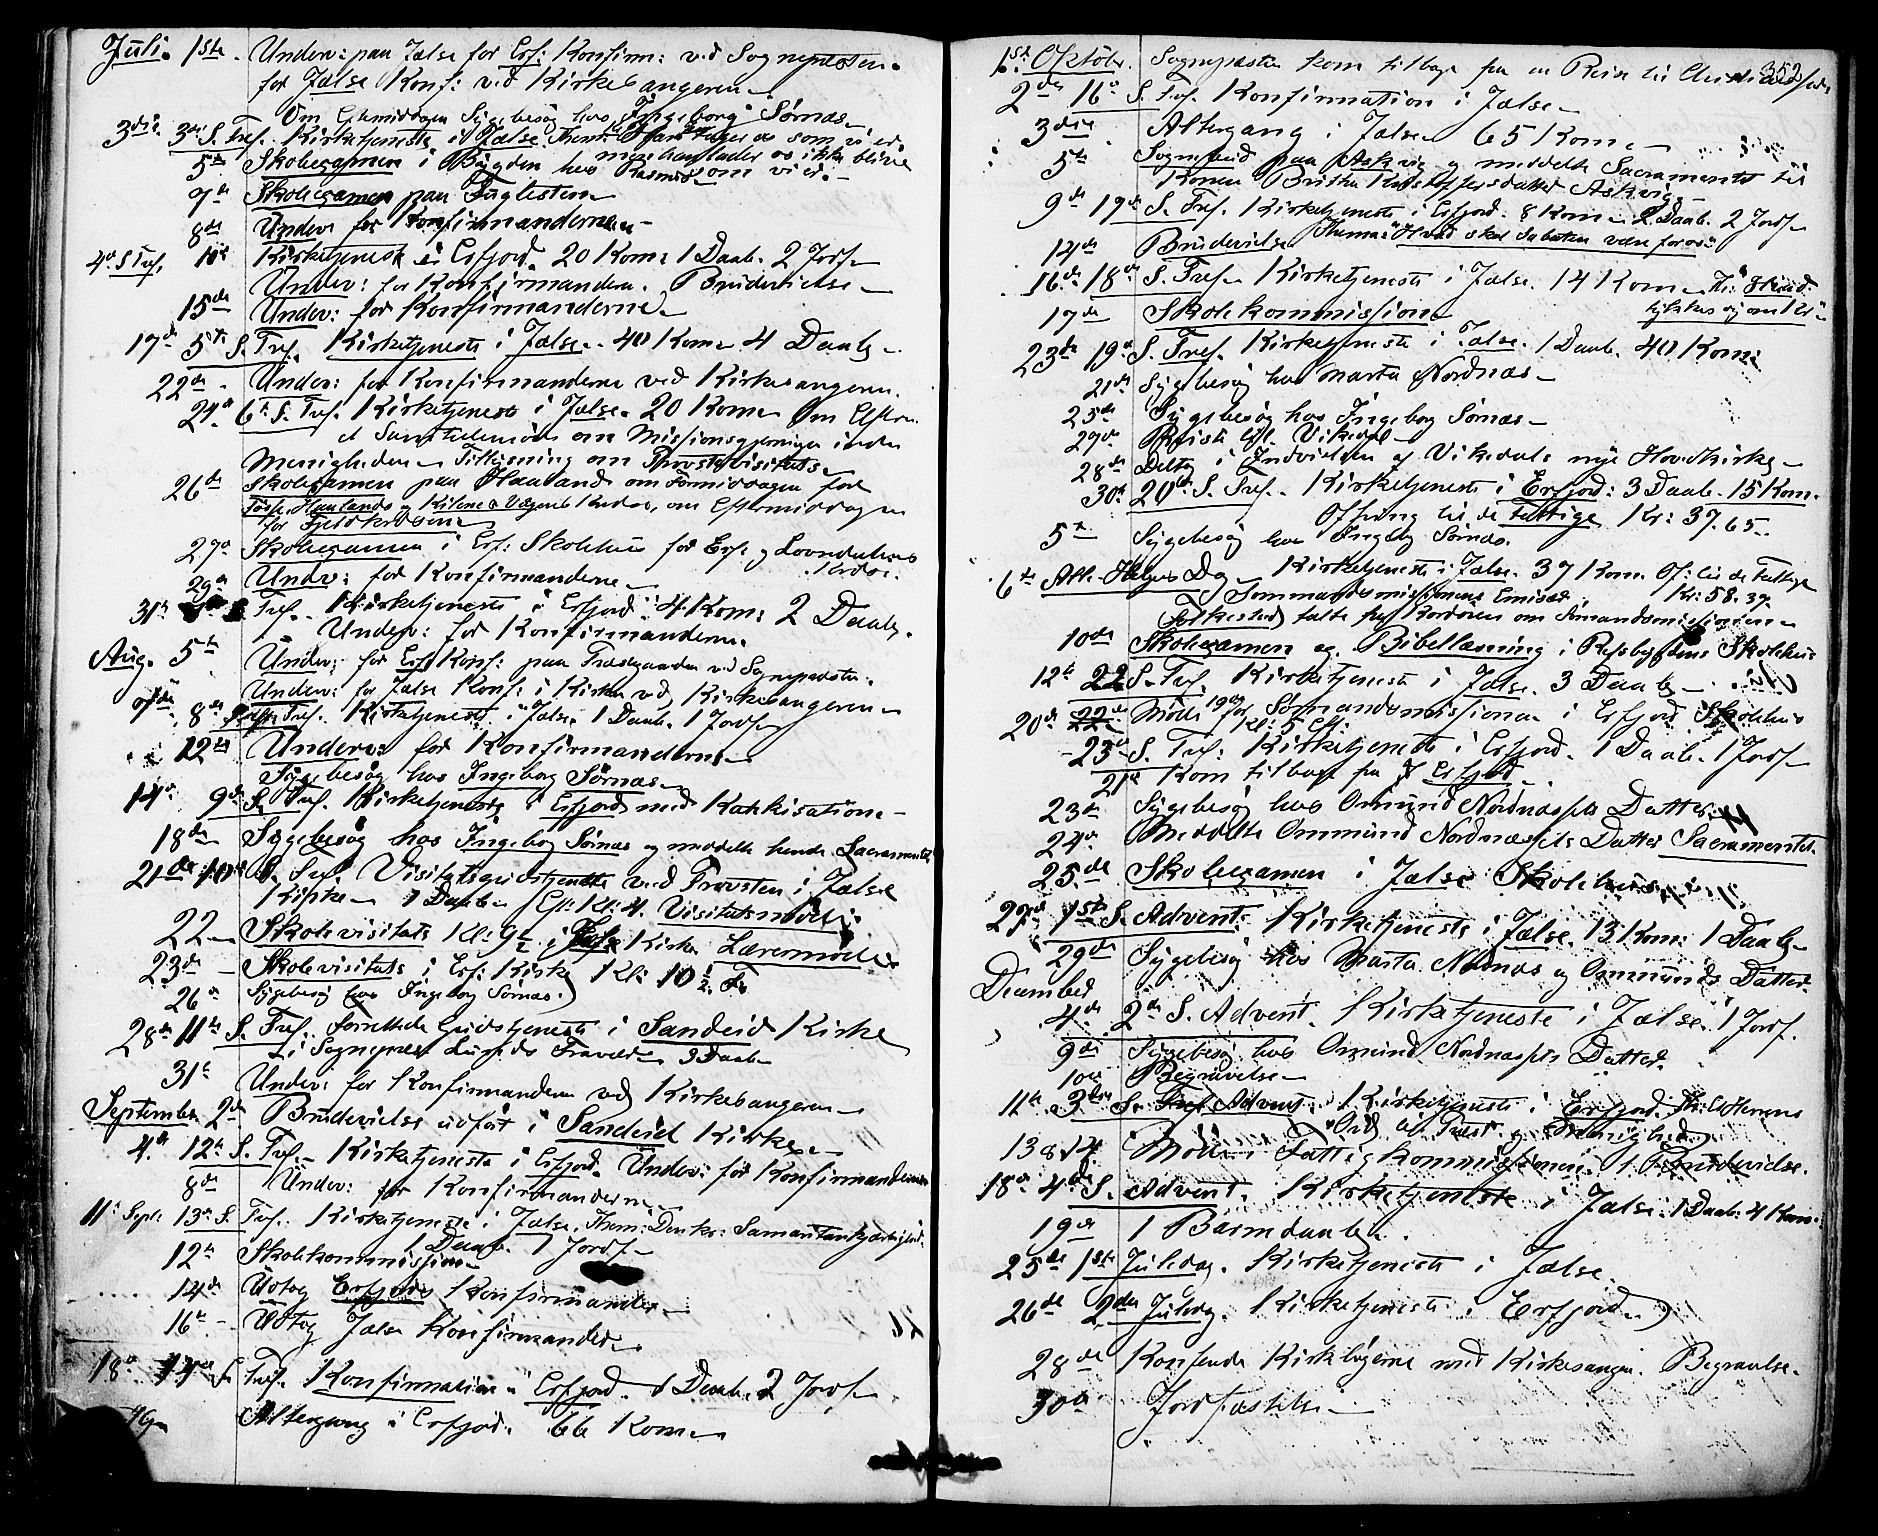 Juli. 1ste. Underv: paa Jælse for Erf: Konfirm: ved Sognepresten.
for Jælse Konf: ved Kirkesangeren
Om Eftermiddagen Sygebesøg hos Ingeborg Sørnæs
3die 3die S. Tref. Kirketjeneste i Jælse
5te Skoleexamen i Bygden hos Rasmus
7de Skoleexamen paa Foglesteen
8de Underv for Konfirmanderne
4de S Tref. 10de Kirketjeneste i Erfjord. 20 Kom: 1 Daab. 2 Jordf
Underv: for Konfirmanderne. Brudevielse
15de Underv: for Konfirmanderne
17de 5te S. Tref. Kirketjeneste i Jælse. 40 Kom 4 Daab
22de Underv: for Konfirmanderne ved Kirkesangeren.
24de 6te S. Tref. Kirketjeneste i Jælse. 20 Kom Om Efterm.
et Samtalemøde om Missionsgjerningen inden
Menigheden. Tillysning om Provstevisitats
26de Skoleexamen paa Haaland om Formiddagen for
Haalands og Kilene & Vaagens Kredse, om Eftermiddagen
for Fjeldkredsen
27de Skoleexamen i Erf: Skolehus for Erf. og Lovndalens
Kreds.
29de Underv: for Konfirmanderne
31te Tref. Kirketjeneste i Erfjord. 4 Kom: 2 Daab.
Underv: for Konfirmanderne.
Aug. 5te Underv: for Erf: Konf: paa Præstgaarden ved Sognepresten.
Underv: for Jælse Konf: i Kirken ved Kirkesangeren
7de 8de S. Tref. Kirketjeneste i Jælse 1 Daab. 1 Jordf
12te Underv: for Konfirmanderne
Sygebesøg hos Ingeborg Sørnæs
14de 9de S. Tref. Kirketjeneste i Erfjord med Katekisation
18de Sygebesøg hos Ingeborg Sørnæs og meddelte hende Sacramentet
21de 10de S. Tref. Visitatsgudstjeneste ved Provsten i Jælse
Kirke 1 Daab Eft: Kl: 4. Visitatsmøde
22 Skolevisitats Kl: 9½ i Jælse Kirke. Læremøde
23de Skolevisitats i Erf: Kirke Kl: 10½ F.
26de Sygebesøg hos Ingeborg Sørnæs.
28de 11te S. Tref. forrettede Gudstjeneste i Sandeid Kirke
i Sognepræst Fravær 3 Daab
31te Underv: for Konfirmanderne ved Kirkesangeren
September 2den Brudevielse udført i Sandeid Kirke
4de 12te S. Tref. Kirketjeneste i Erfjord. Underv: for Konfirmanderne
8de Underv: for Konfirmanderne
11te Sept: 13de S. Tref. Kirketjeneste i Jælse. Them: Den kr: Samaritankjærlighed.
1 Daab. 1 Jordf
12te Skolekommission
14de Udtog Erfjords Konfirmander
16te Udtog Jælse Konfirmander
18de S. Tref. Konfirmation i Erfjord. 1 Daab. 2 Jordf
19 Altergang i Erfjord. 66 Kom
352
1ste Oktober. Sognepresten kom tilbage fra en Reise til
2den 16de S. Tref. Konfirmation i Jælse
3die Altergang i Jælse 65 Kom
5te Sognebud paa Askvig og meddelte Sacramentet til
Konen Britha Kristoffersdatter Askvig
9de 17de S. Tref. Kirketjeneste i Erfjord. 8 Kom 2 Daab. 2 Jordf
Thema: Hvad skal Sabaten være for os
14de Brudevielse
16de 18de S. Tref Kirketjeneste i Jælse. 14 Kom
17de Skolekommission
23de 19de S. Tref. Kirketjeneste i Jælse. 1 Daab. 40 Kom:
21de Sygebesøg hos Marta Nordnæs
25de Sygebesøg hos Ingeborg Sørnæs
27de Reiste til Vikedal
28de Deltog i Indvielsen af Vikedals nye Hovedkirke
30te 20de S. Tref. Kirketjeneste i Erfjord: 3 Daab. 15 Kom.
Offring til de fattige Kr: 37.65.
5te Sygebesøg hos Ingeborg Sørnæs.
6te Alle Helgens Dag Kirketjeneste i Jælse. 37 Kom. Of: til de Fattige
Sømandsmissionens Emissær Kr: 58.37.
Folkestad talte fra Kordøren om Sømandsmissionen
10de Skoleexamen og Bibellæsning i Skolehus
12te 22 S. Tref. Kirketjeneste i Jælse. 3 Daab
20de Møde 19de for Sømandsmissionen i Erfjord Skolehus
Kl: 5 Eft:
23de S. Tref: Kirketjeneste i Erfjord. 1 Daab. 1 Jordf
21de Kom tilbage fra Erfjord
23de Sygebesøg hos Ommund Nordnæsset Datter
24de Meddelte Ommund Nordnæssets Datter Sacramentet.
25de Skoleexamen i Jælse Skolehus
27de 1ste S. Advent. Kirketjeneste i Jælse. 13 Kom: 1 Daab
29de Sygebesøg hos Marta Nordnæs og Ommunds Datter.
December
4de 2den S. Advent. Kirketjeneste i Jælse. 1 Jordf.
9de Sygebesøg hos Ommund Nordnæssets Datter
10de Begravelse
11te 3die S. Advent. Kirketjeneste i Erfjord.
Ord til Præst og Menighed
13 & 14. Møde i Fattigkommissionen. 1 Brudevielse.
18de 4de S. Advent. Kirketjeneste i Jælse. 1 Daab: 4 Kom:
19de 1 Barnedaab.
25de 1ste Juledag. Kirketjeneste i Jælse.
26de 2den Juledag. Kirketjeneste i Erfjord
28de Kirkebøgerne med Kirkesangeren. Begravelse.
30te Jordfæstelse